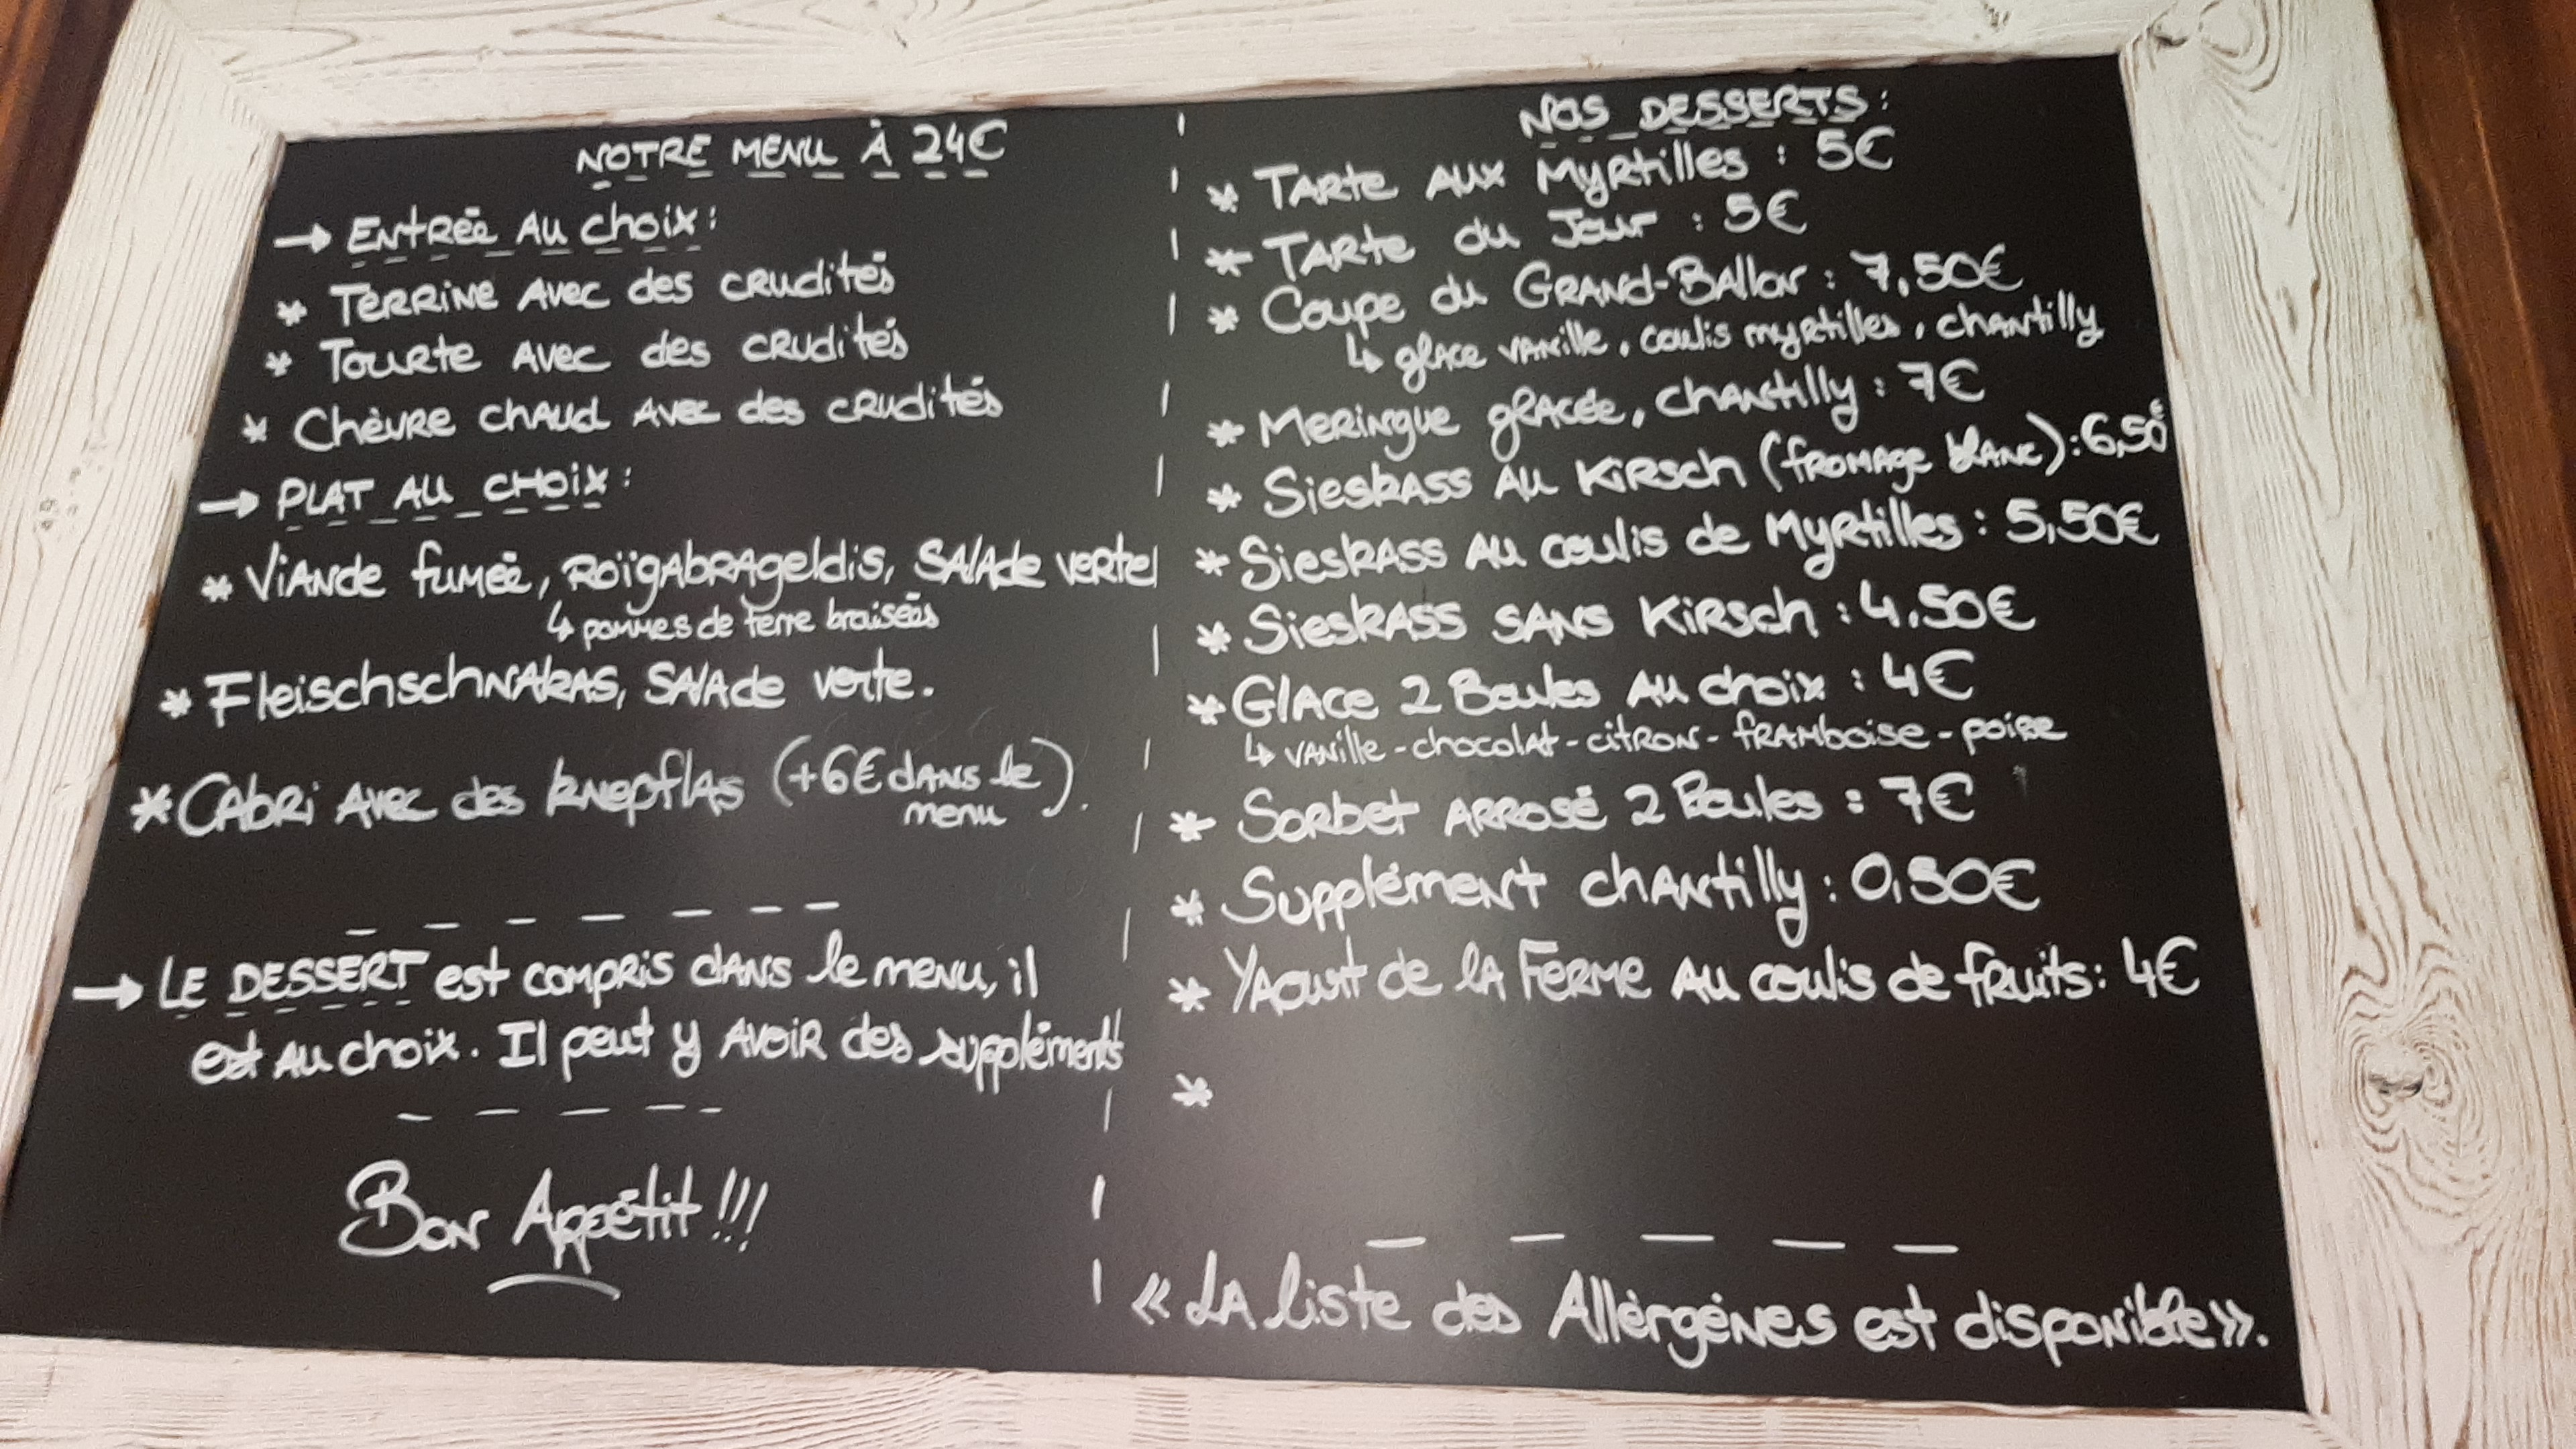 NOTRE MENU À 24€
→ Entrée au choix :
* Terrine avec des crudités
* Tourte avec des crudités
* Chèvre chaud avec des crudités
→ PLAT AU CHOIX :
* Viande fumée, Roïgabrageldis, salade verte
↳ pommes de terre braisées
* Fleischschnakas, salade verte.
* Cabri avec des knepflas (+6€ dans le
menu).
→ LE DESSERT est compris dans le menu, il
est au choix. Il peut y avoir des suppléments
Bon Appétit !!!
NOS DESSERTS :
* Tarte aux Myrtilles : 5€
* Tarte du Jour : 5€
* Coupe du Grand-Ballon : 7,50€
↳ glace vanille, coulis myrtilles, chantilly
* Meringue glacée, chantilly : 7€
* Sieskass au Kirsch (fromage blanc) : 6,50€
* Sieskass au coulis de Myrtilles : 5,50€
* Sieskass sans Kirsch : 4,50€
* Glace 2 Boules au choix : 4€
↳ vanille - chocolat - citron - framboise - poire
* Sorbet arrosé 2 Boules : 7€
* Supplément chantilly : 0,50€
* Yaourt de la Ferme au coulis de fruits : 4€
*
« La liste des Allérgénes est disponible ».